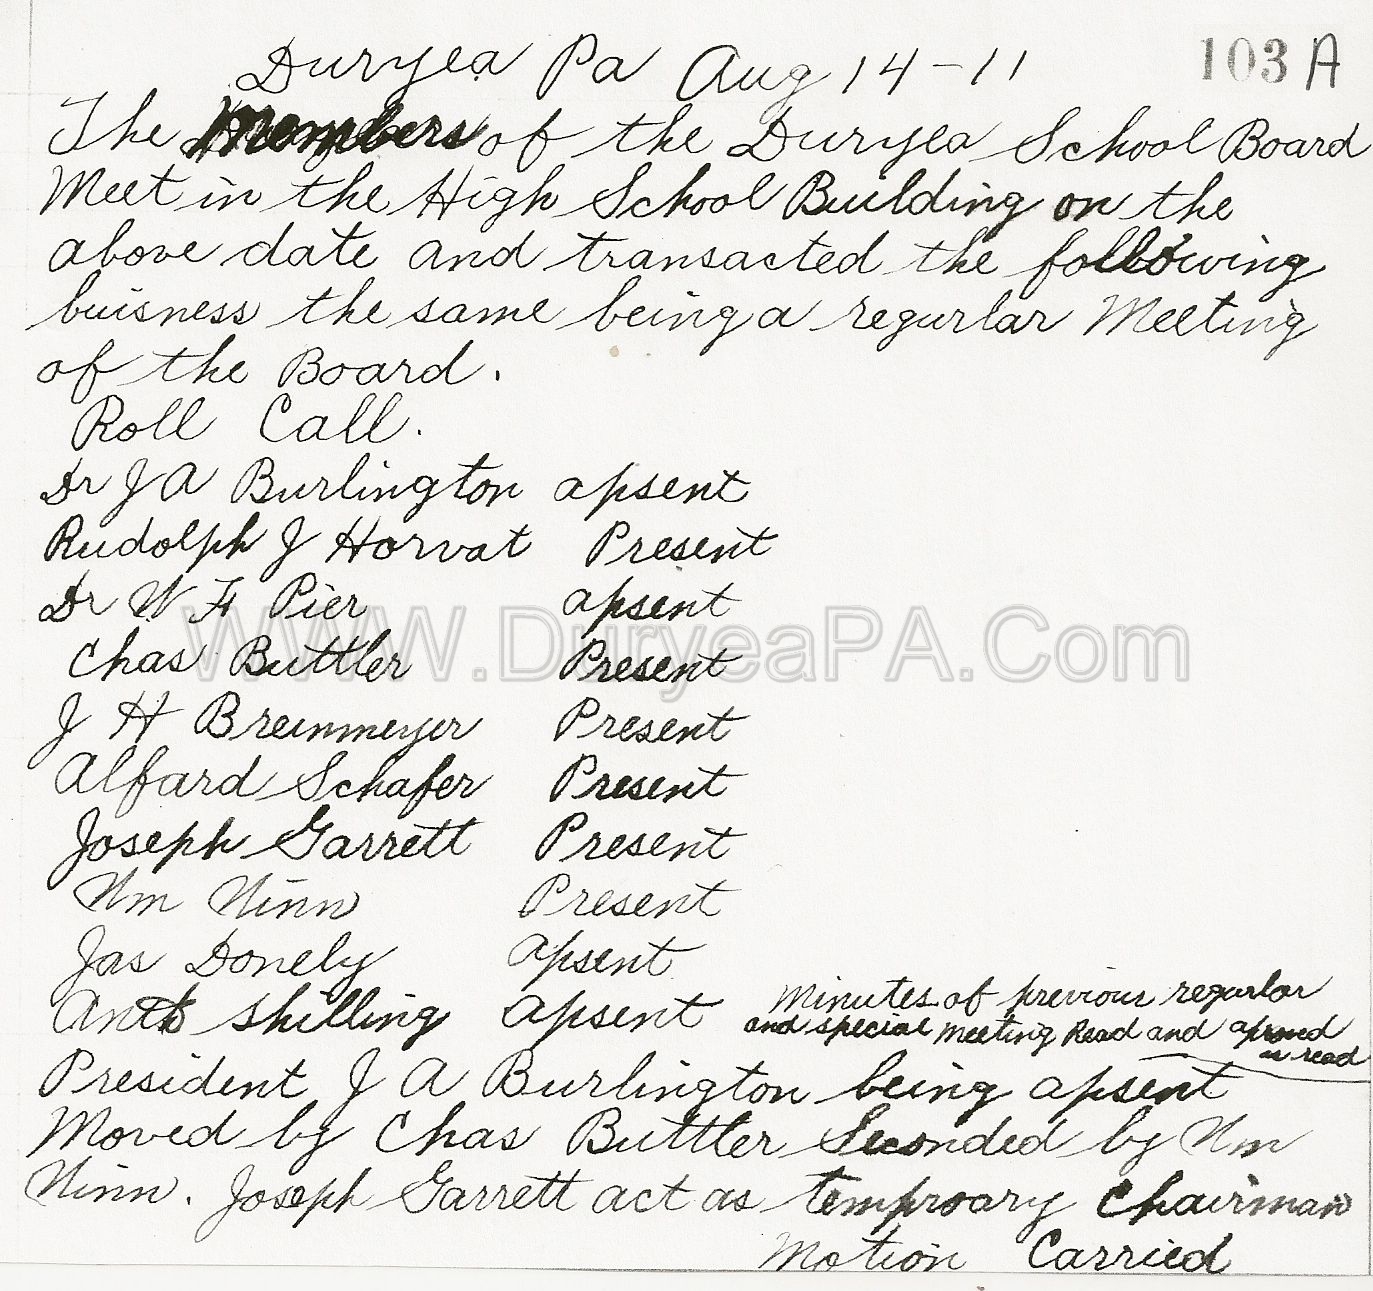 103 A
Duryea Pa Aug 14-11
The Members of the Duryea School Board
Meet in the High School Building on the
above date and transacted the following
buisness the same being a regurlar Meeting
of the Board.
Roll Call.
Dr J A Burlington apsent
Rudolph J Horvat Present
Dr W F Pier apsent
WWW.DuryeaPA.Com
Chas Buttler Present
J H Breinmeyer Present
Alfard Schafer Present
Joseph Garrett Present
Wm Ninn Present
Jas Donely apsent
Anth Shilling apsent
Minutes of previour regurlar
and special meeting Read and aproved
as read
President J A Burlington being apsent
Moved by Chas Buttler Seconded by Wm
Ninn. Joseph Garrett act as temproary Chairman
Motion Carried